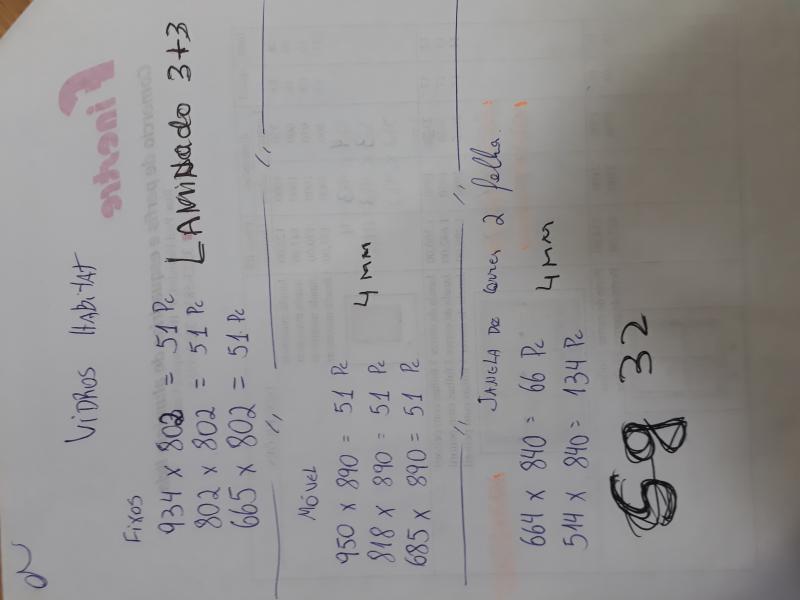 2
VIDROS HABITAT
FIXOS
934 x 802 = 51 Pc
802 x 802 = 51 Pc
665 x 802 = 51 Pc
LAMINADO 3+3
MÓVEL
950 x 890 = 51 Pc
818 x 890 = 51 Pc
685 x 890 = 51 Pc
4 mm
JANELA DE correr 2 folha.
664 x 840 = 66 Pc
514 x 840 = 134 Pc
4 mm
32